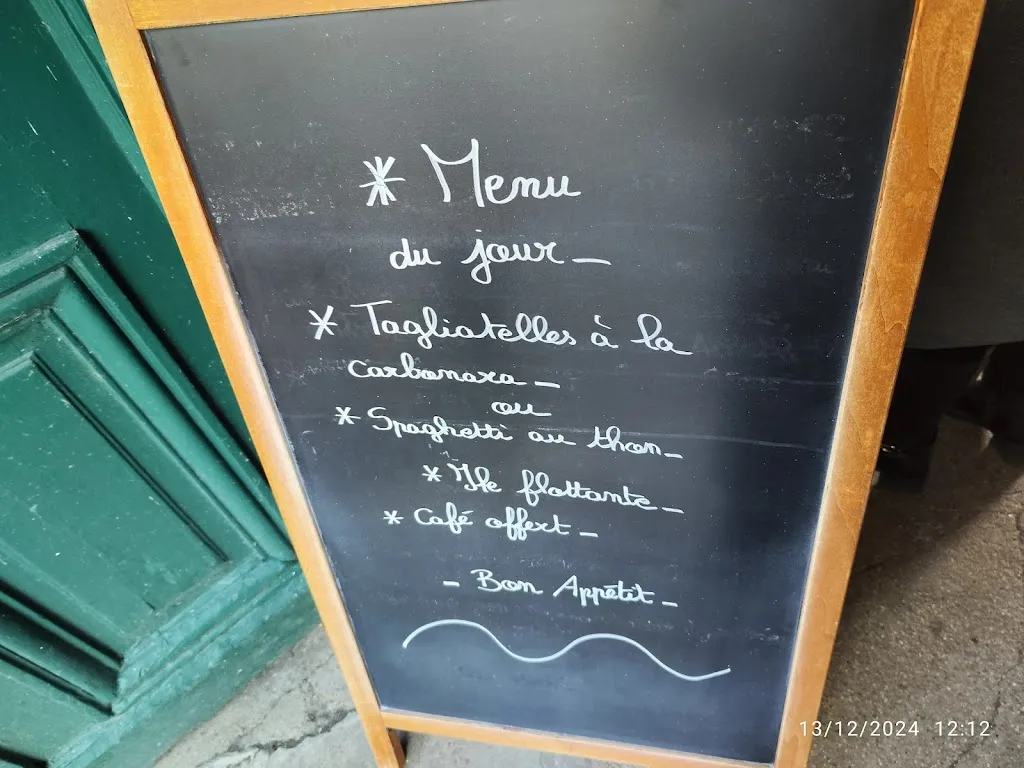 * Menu
du jour_
* Tagliatelles à la
carbonara_
ou
* Spaghetti au thon_
* Ile flottante_
* Café offert_
- Bon Appétit_
13/12/2024 12:12